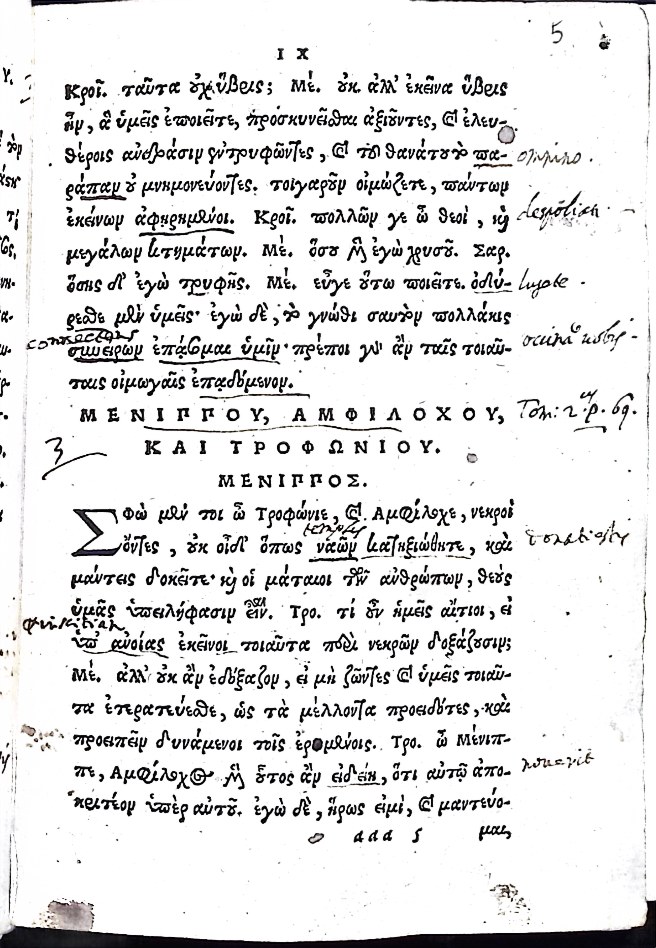 5
Ι Χ
Κροῖ. ταῦτα οὐχ ὕβρις; Μέ. οὐκ. ἀλλ' ἐκεῖνα ὕβρις
ἦν, ἃ ὑμεῖς ἐποιεῖτε, προσκυνεῖσθαι ἀξιοῦντες, καὶ ἐλευ-
θέροις ἀνδράσιν ἐντρυφῶντες, καὶ τοῦ θανάτου τὸ πα-
ράπαν οὐ μνημονεύοντες. τοιγαροῦν οἰμώζετε, πάντων
ἐκείνων ἀφῃρημένοι. Κροῖ. πολλῶν γε ὦ θεοὶ, καὶ
μεγάλων κτημάτων. Μέ. ὅσου δ' ἐγὼ χρυσοῦ. Σαρ.
ὅσης δ' ἐγὼ τρυφῆς. Μέ. εὖγε οὕτω ποιεῖτε. ὀδύ-
ρεσθε μὲν ὑμεῖς· ἐγὼ δὲ, τὸ γνῶθι σαυτὸν πολλάκις
συνείρων ἐπᾴσομαι ὑμῖν· πρέποι γὰρ ἂν ταῖς τοιαύ-
ταις οἰμωγαῖς ἐπᾳδόμενον.
ΜΕΝΙΠΠΟΥ, ΑΜΦΙΛΟΧΟΥ,
3 ΚΑΙ ΤΡΟΦΩΝΙΟΥ.
ΜΕΝΙΠΠΟΣ.
Σφὼ μέν τοι ὦ Τροφώνιε, καὶ Ἀμφίλοχε, νεκροὶ
ὄντες, οὐκ οἶδ' ὅπως ναῶν κατηξιώθητε, καὶ
μάντεις δοκεῖτε· καὶ οἱ μάταιοι τῶν ἀνθρώπων, θεοὺς
ὑμᾶς ὑπειλήφασιν εἶναι. Τρο. τί οὖν ἡμεῖς αἴτιοι, εἰ
ὑπ' ἀνοίας ἐκεῖνοι τοιαῦτα περὶ νεκρῶν δοξάζουσιν;
Μέ. ἀλλ' οὐκ ἂν ἐδόξαζον, εἰ μὴ ζῶντες καὶ ὑμεῖς τοιαῦ-
τα ἐτερατεύεσθε, ὡς τὰ μέλλοντα προειδότες, καὶ
προειπεῖν δυνάμενοι τοῖς ἐρομένοις. Τρο. ὦ Μένιπ-
πε, Ἀμφίλοχος μὲν οὗτος ἂν εἰδείη, ὅτι αὐτῷ ἀπο-
κριτέον ὑπὲρ αὐτοῦ. ἐγὼ δὲ, ἥρως εἰμὶ, καὶ μαντεύο-
ddd 5 μαι,